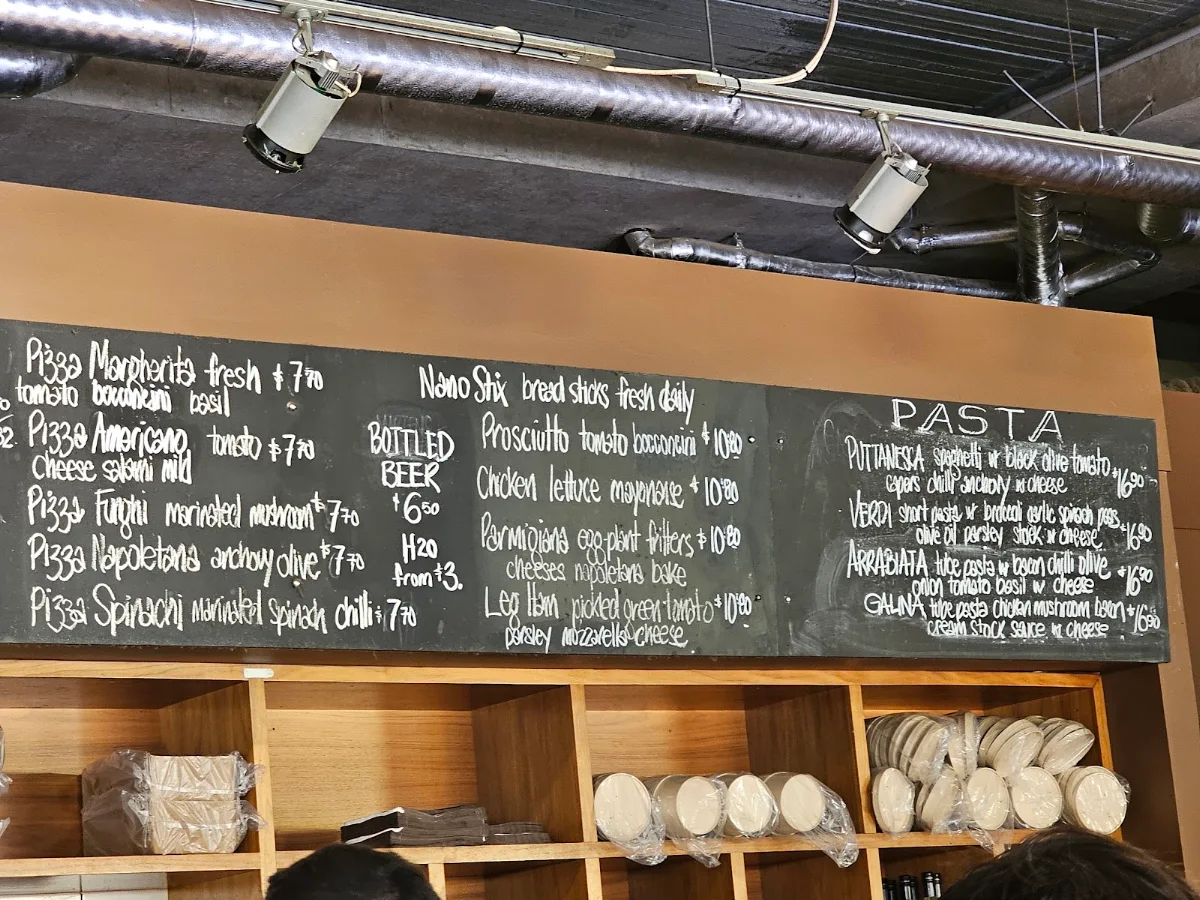 Pizza Margherita fresh $7.70
tomato bocconcini basil
Pizza Americano tomato $7.70
cheese salami mild
Pizza Funghi marinated mushroom $7.70
Pizza Napoletana anchovy olive $7.70
Pizza Spinachi marinated spinach chilli $7.70
BOTTLED
BEER
$6.50
H20
from $3.
Nano Stix bread sticks fresh daily
Prosciutto tomato bocconcini $10.80
Chicken lettuce mayonaise $10.80
Parmigiana egg-plant fritters $10.80
cheeses napoletana bake
Leg Ham pickled green tomato $10.80
parsley mozzarella cheese
PASTA
PUTTANESCA spaghetti w black olive tomato
capers chilli anchovy w cheese $16.90
VERDI short pasta w broccoli garlic spinach peas
olive oil parsley stock w cheese $16.90
ARRABIATA tube pasta w bacon chilli olive
onion tomato basil w cheese $16.90
GALINA tube pasta chicken mushroom bacon $16.90
cream stock sauce w cheese